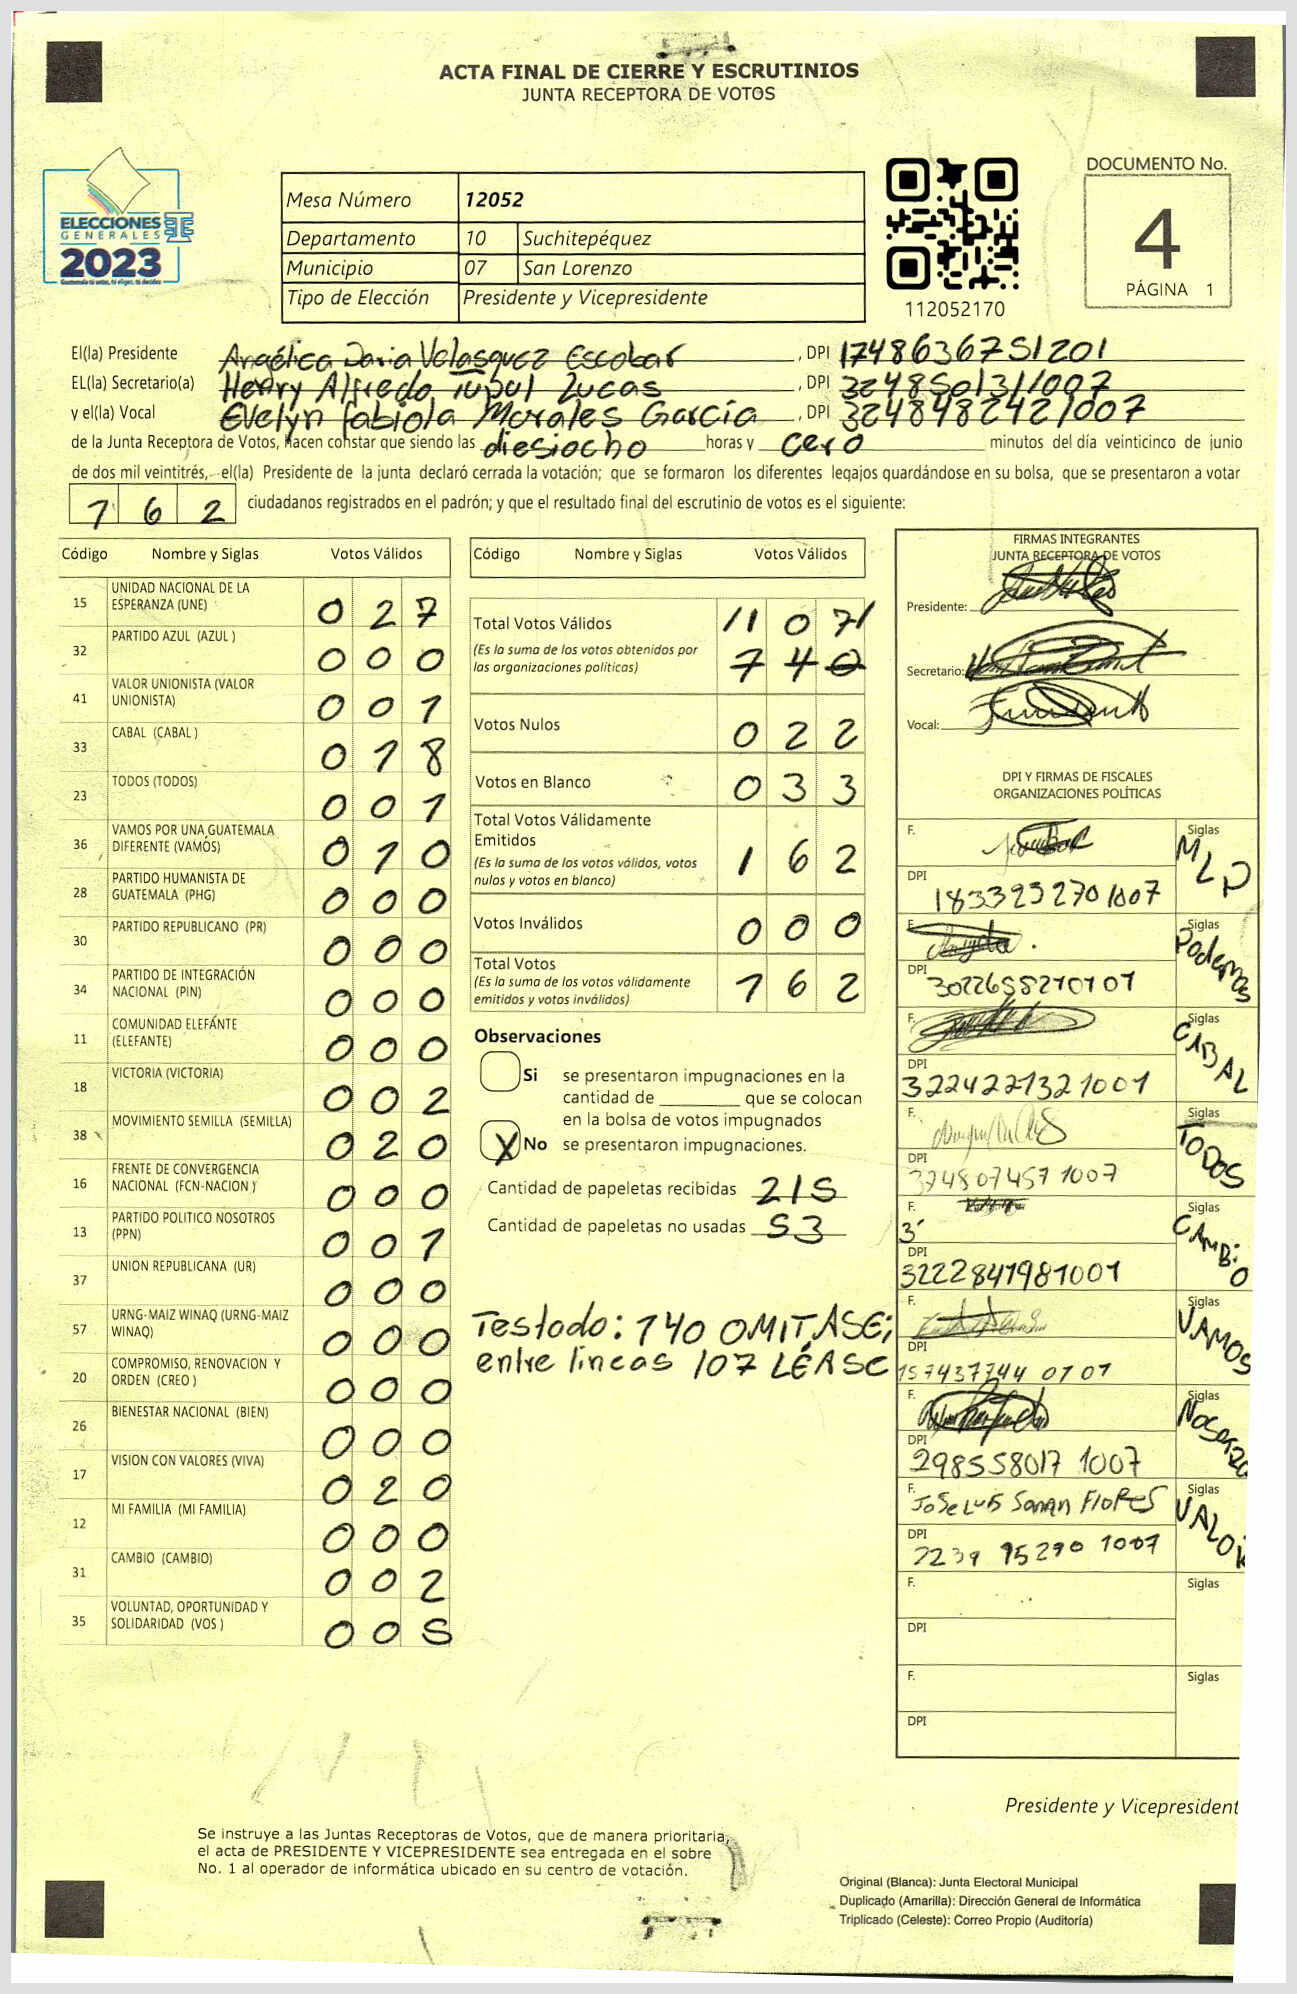 ACTA FINAL DE CIERRE Y ESCRUTINIOS
JUNTA RECEPTORA DE VOTOS
ELECCIONES
GENERALES
2023
Mesa Número 12052
Departamento 10 Suchitepéquez
Municipio 07 San Lorenzo
Tipo de Elección Presidente y Vicepresidente
112052170
DOCUMENTO No.
4
PÁGINA 1
El(la) Presidente Angélica Daria Velasquez Escobar , DPI 1748636751201
EL(la) Secretario(a) Henry Alfredo Tupul Zucas , DPI 3248501311007
y el(la) Vocal Evelyn fabiola Morales García , DPI 3248482421007
de la Junta Receptora de Votos, hacen constar que siendo las diesiocho horas y cero minutos del día veinticinco de junio
de dos mil veintitrés, el(la) Presidente de la junta declaró cerrada la votación; que se formaron los diferentes legajos guardándose en su bolsa, que se presentaron a votar
162 ciudadanos registrados en el padrón; y que el resultado final del escrutinio de votos es el siguiente:
Código Nombre y Siglas Votos Válidos
15 UNIDAD NACIONAL DE LA ESPERANZA (UNE) 027
32 PARTIDO AZUL (AZUL ) 000
41 VALOR UNIONISTA (VALOR UNIONISTA) 001
33 CABAL (CABAL ) 018
23 TODOS (TODOS) 001
36 VAMOS POR UNA GUATEMALA DIFERENTE (VAMOS) 010
28 PARTIDO HUMANISTA DE GUATEMALA (PHG) 000
30 PARTIDO REPUBLICANO (PR) 000
34 PARTIDO DE INTEGRACIÓN NACIONAL (PIN) 000
11 COMUNIDAD ELEFANTE (ELEFANTE) 000
18 VICTORIA (VICTORIA) 002
38 MOVIMIENTO SEMILLA (SEMILLA) 020
16 FRENTE DE CONVERGENCIA NACIONAL (FCN-NACION ) 000
13 PARTIDO POLITICO NOSOTROS (PPN) 001
37 UNION REPUBLICANA (UR) 000
57 URNG-MAIZ WINAQ (URNG-MAIZ WINAQ) 000
20 COMPROMISO, RENOVACION Y ORDEN (CREO ) 000
26 BIENESTAR NACIONAL (BIEN) 000
17 VISION CON VALORES (VIVA) 020
12 MI FAMILIA (MI FAMILIA) 000
31 CAMBIO (CAMBIO) 002
35 VOLUNTAD, OPORTUNIDAD Y SOLIDARIDAD (VOS ) 005
Código Nombre y Siglas Votos Válidos
Total Votos Válidos /107/
(Es la suma de los votos obtenidos por las organizaciones políticas) 140
Votos Nulos 022
Votos en Blanco 033
Total Votos Válidamente Emitidos
(Es la suma de los votos válidos, votos nulos y votos en blanco) 162
Votos Inválidos 000
Total Votos
(Es la suma de los votos válidamente emitidos y votos inválidos) 162
Observaciones
Si se presentaron impugnaciones en la
cantidad de ________ que se colocan
en la bolsa de votos impugnados
X No se presentaron impugnaciones.
Cantidad de papeletas recibidas 215
Cantidad de papeletas no usadas 53
Testado: 140 OMITASE;
entre lineas 107 LÉASE
FIRMAS INTEGRANTES
JUNTA RECEPTORA DE VOTOS
Presidente:
Secretario:
Vocal:
DPI Y FIRMAS DE FISCALES
ORGANIZACIONES POLÍTICAS
F. Siglas MLP
DPI 1833932701007
F. Siglas Podemos
DPI 3022658210101
F. Siglas CABAL
DPI 3224221321001
F. Siglas TODOS
DPI 3248074571007
F. Siglas CAMBiO
3
DPI 3222841981001
F. Siglas VAMOS
DPI 157437744 0101
F. Siglas
DPI 298558017 1007
F. JoSe LuiS Flores Siglas VALOR
DPI 2239 95290 1007
F. Siglas
DPI
F. Siglas
DPI
Presidente y Vicepresident
Se instruye a las Juntas Receptoras de Votos, que de manera prioritaria,
el acta de PRESIDENTE Y VICEPRESIDENTE sea entregada en el sobre
No. 1 al operador de informática ubicado en su centro de votación.
Original (Blanca): Junta Electoral Municipal
Duplicado (Amarilla): Dirección General de Informática
Triplicado (Celeste): Correo Propio (Auditoría)